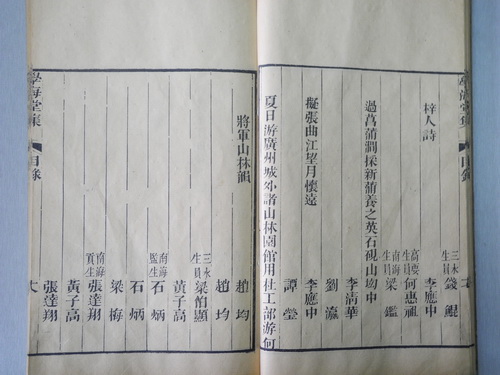 學海堂集
目錄
三水生員 錢鯤
梓人詩
李應中
高要生員 何惠祖
南海生員 梁鑑
過菖蒲澗採新蒲養之英石硯山均中
李清華
劉瀛
擬張曲江望月懷遠
李應中
譚瑩
夏日游廣州城外諸山林園館用杜工部游何
將軍山林韻
趙均
趙均
三水生員 梁怡顯
黃子高
南海監生 石炳
石炳
梁梅
南海貢生 張達翔
黃子高
張達翔
學海堂集
目錄